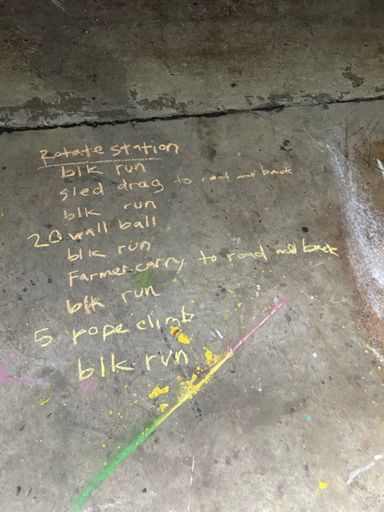 Rotate station
blk run
sled drag to road and back
blk run
20 wall ball
blk run
Farmer carry to road and back
blk run
5 rope climb
blk run